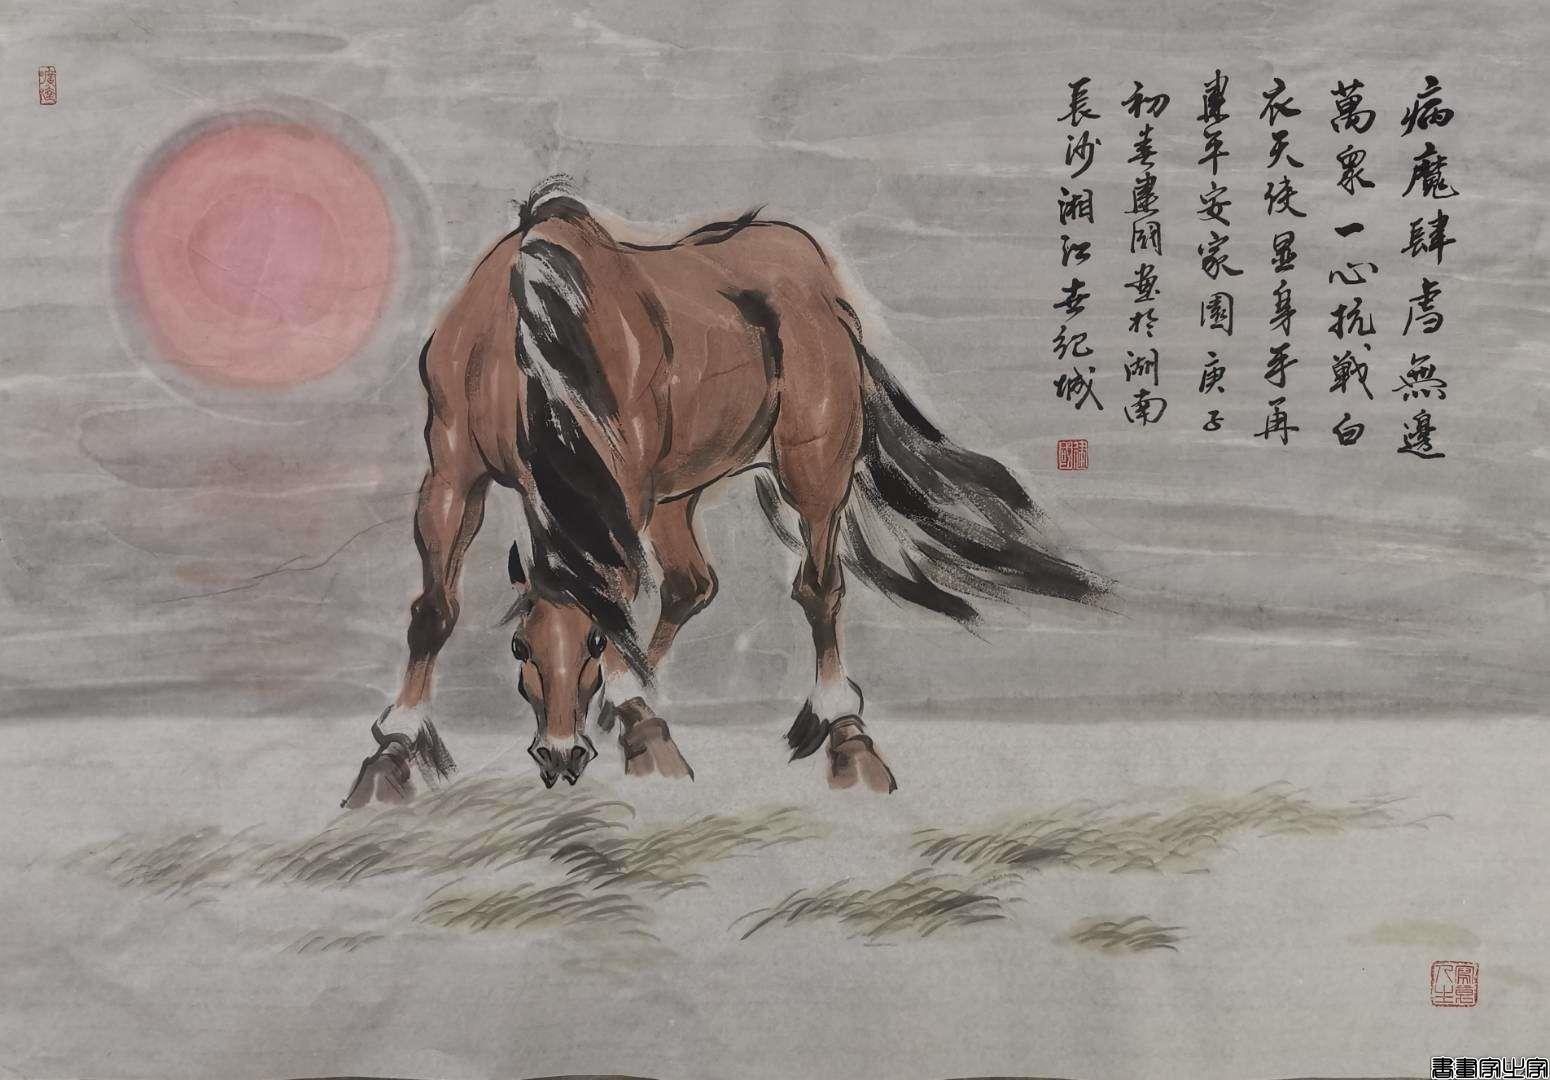 病魔肆虐無邊
萬眾一心抗戰白
衣天使显身手再
建平安家園 庚子
初春建国畫於湖南
長沙湘江世纪城
曠達
建國
寫意人生
書畫家之家